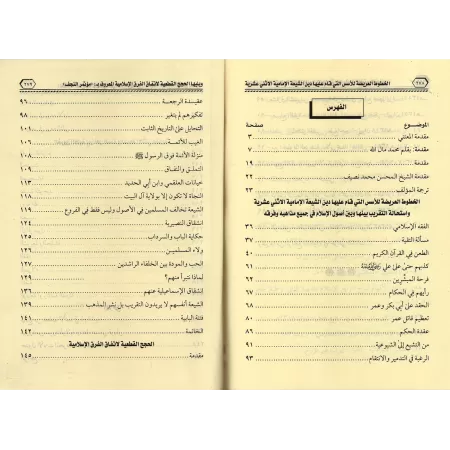 الخطوط العريضة للأسس التي قام عليها دين الشيعة الإمامية الاثني عشرية
الفهرس
الموضوع صفحة
مقدمة المعتني ٣
مقدمة: بقلم محمد مال الله ٧
مقدمة ١٩
مقدمة الشيخ المحسن محمد نصيف ٢٢
ترجمة المؤلف
الخطوط العريضة للأسس التي قام عليها دين الشيعة الإمامية الاثني عشرية
واستحالة التقريب بينها وبين أصول الإسلام في جميع مذاهبه وفرقه
الفقه الإسلامي ٣٦
مسألة التقية ٣٧
الطعن في القرآن الكريم ٤٠
كذبهم حتى على علي ٦١
فرحة المبشرين
رأيهم في الحكام ٦٧
الحقد على أبي بكر وعمر ٦٨
تعظيم قاتل عمر ٨٠
عقدة الحكم ٨٦
من التشيع إلى الشيوعية ٩١
الرغبة في التدمير والانتقام ٩٣
ويليها: الحجج القطعية لاتفاق الفرق الإسلامية المعروف بـ: «مؤتمر النجف»
عقيدة الرجعة ٩٦
تفكيرهم لم يتغير ٩٨
التحايل على التاريخ الثابت ١٠١
الغيب للأئمة ١٠٦
منزلة الأئمة فوق الرسول ﷺ ١٠٨
التملق والنفاق ١٠٩
خيانات العلقمي وابن أبي الحديد ١١٣
النجاة لا تكون إلا بولاية آل البيت ١١٨
الشيعة تخالف المسلمين في الأصول وليس فقط في الفروع ١١٩
انشقاق النصيرية ١٢٤
حكاية الباب والسرداب ١٢٥
ولاء المسلمين ١٢٦
الحب والمودة بين الخلفاء الراشدين ١٢٧
لماذا نتبرأ منهم؟ ١٢٩
انشقاق الإسماعيلية عنهم ١٣٦
الشيعة أنفسهم لا يريدون التقريب بل نشر المذهب ١٣٩
فتنة البابية ١٤١
الخاتمة ١٤٢
الحجج القطعية لاتفاق الفرق الإسلامية
مقدمة ١٤٥